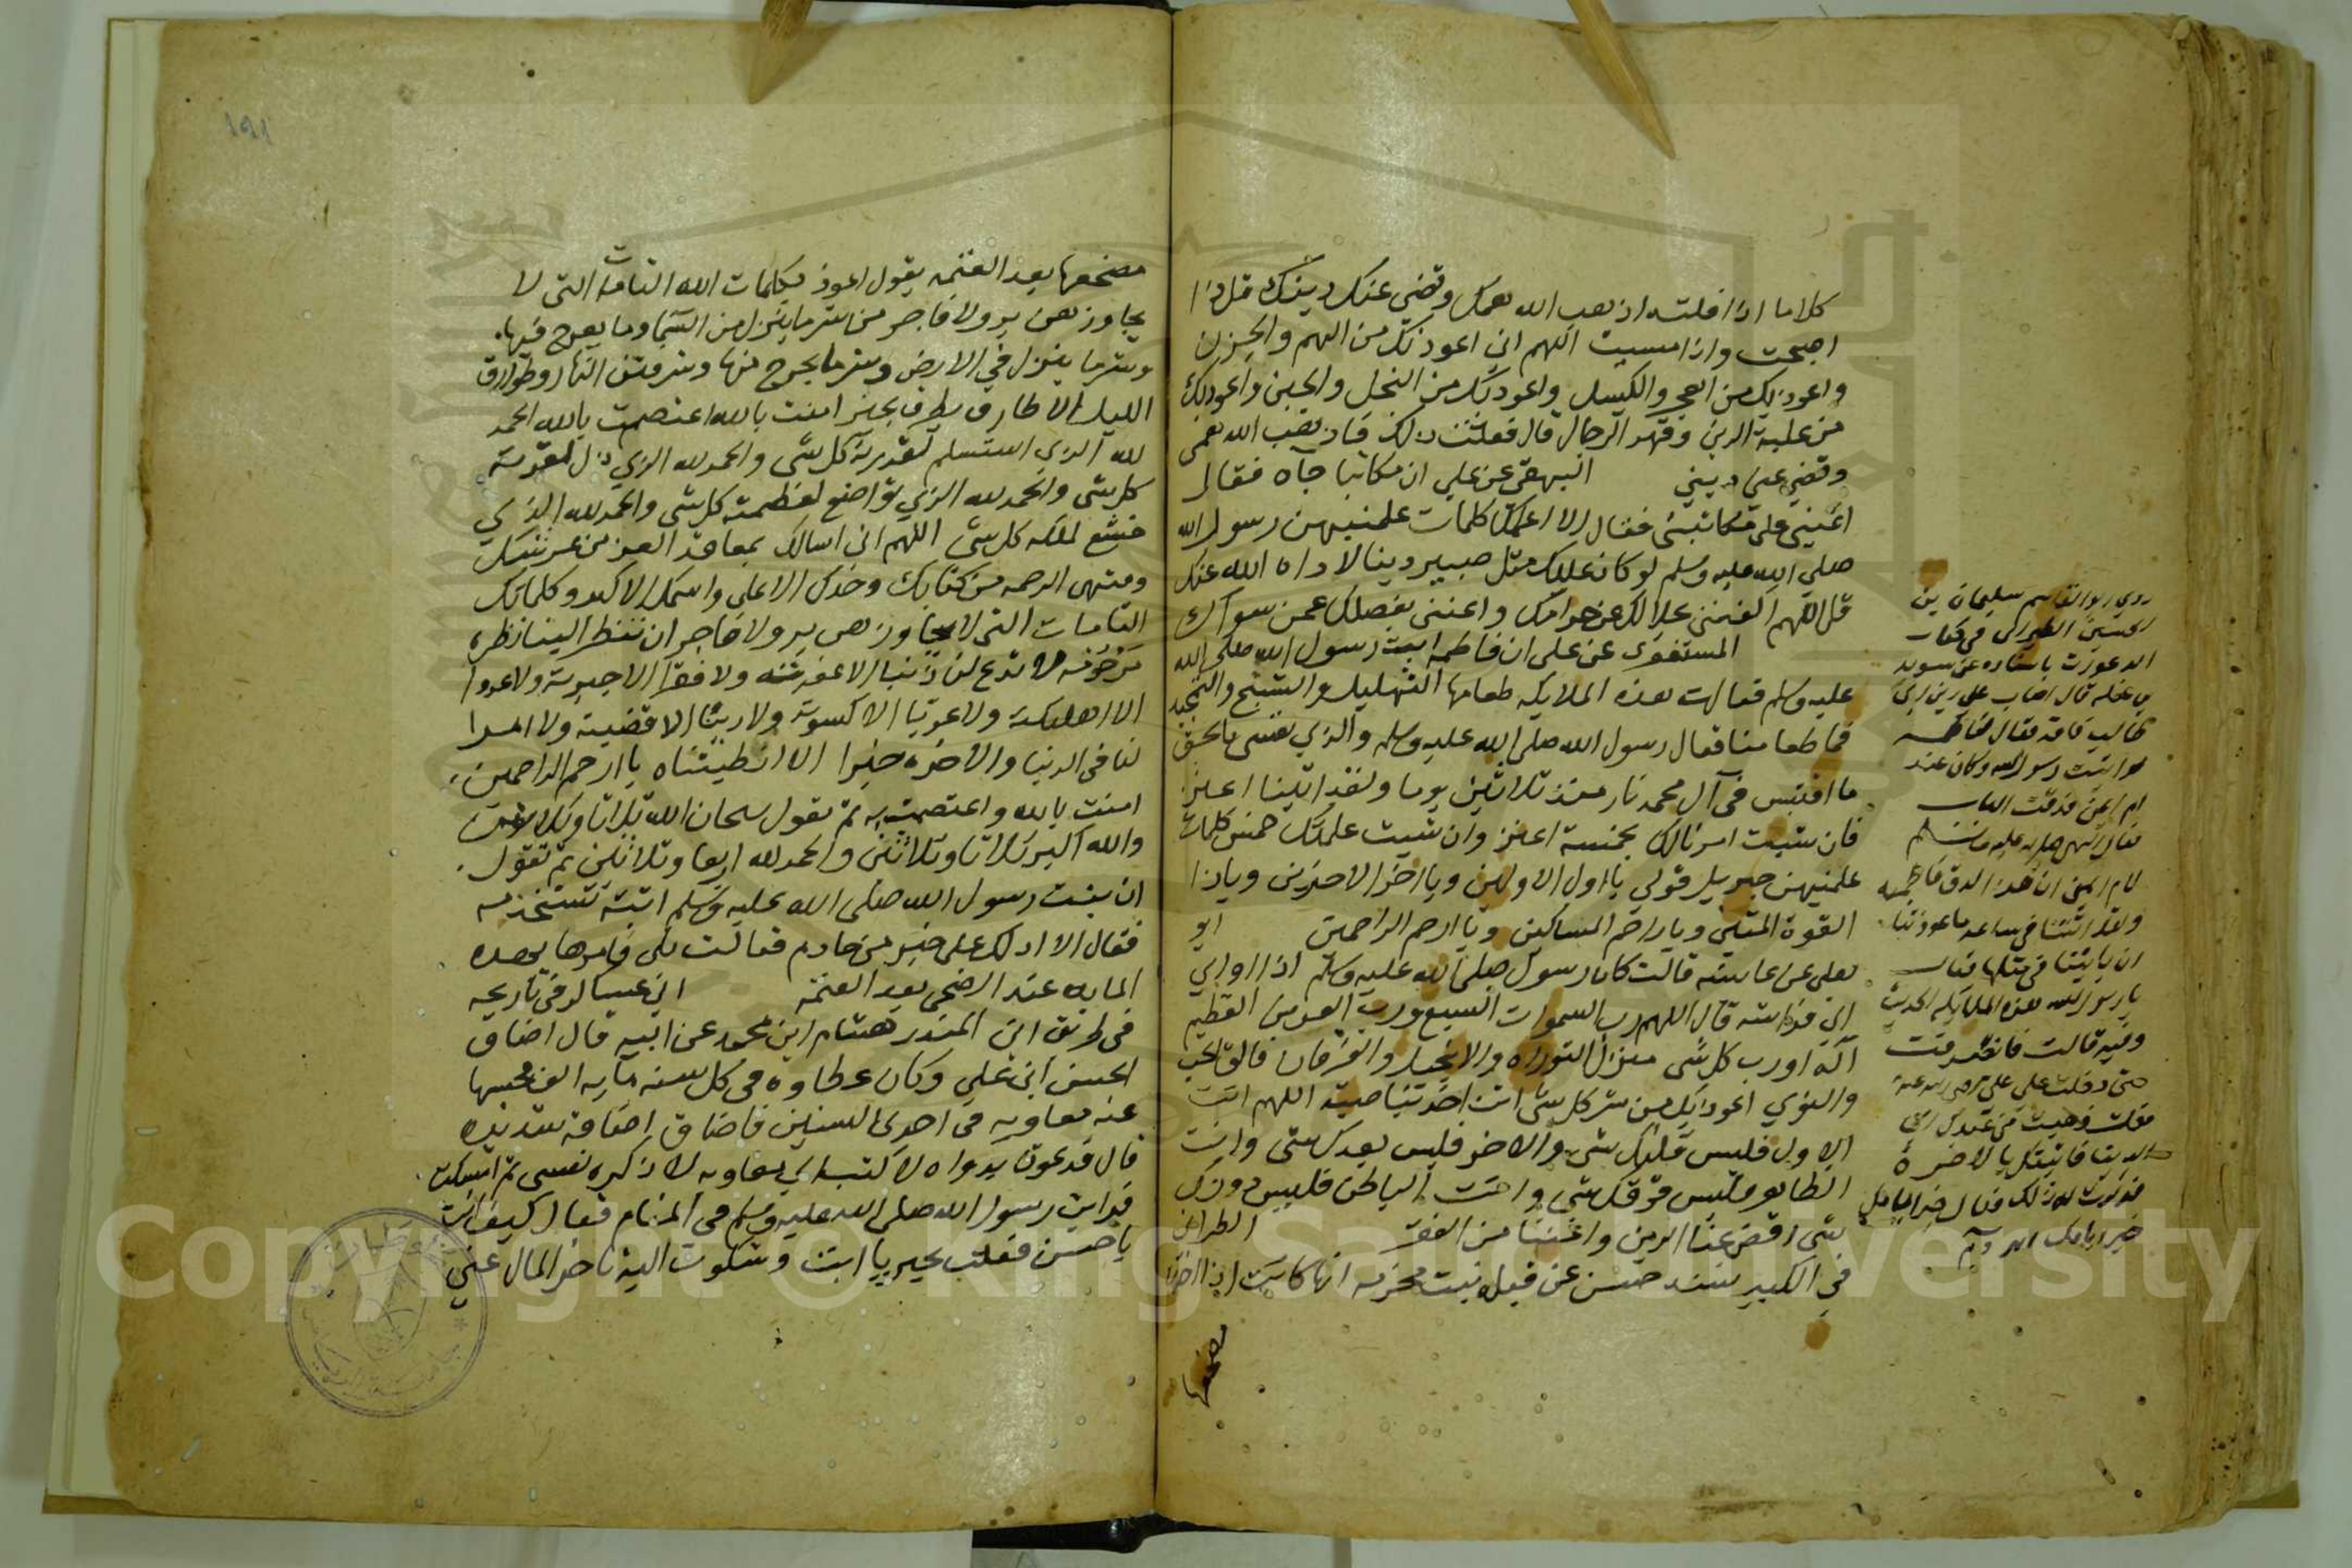 كلاما اذا قلته اذهب الله همك وقضي عنك دينك قل اذا
اصبحت واذا امسيت اللهم اني اعوذ بك من الهم والحزن
واعوذ بك من العجز والكسل واعوذ بك من البخل والجبن واعوذ بك
من غلبة الدين وقهر الرجال قال فقلت ذلك فاذهب الله همي
وقضي عني ديني البيهقي عن علي ان مكاتبا جاه فقال
اعنيني علي مكاتبتي فقال الا اعلمك كلمات علمنيهن رسول الله
صلي الله عليه وسلم لو كان عليك مثل صبير دينا لاداه الله عنك
قل اللهم اغنني بحلالك عن حرامك واغنني بفضلك عمن سواك
المستغفري عن علي ان فاطمه ابنت رسول الله صلي الله
عليه وسلم قالت هذه الملايكه طعامها التهليل والتسبيح والتحميد
فما طعامنا فقال رسول الله صلي الله عليه وسلم والذي نفسي بالحق
ما اقتبس في آل محمد نار منذ ثلاثين يوما ولقد اتينا اعنز
فان شيت امرنالك بخمسة اعنز وان شيت علمتك خمس كلمات
علمنيهن جبريل قولي يا اول الاولين ويا اخر الاخرين وياذا
القوة المتين ويا راحم المساكين ويا ارحم الراحمين ابو
يعلي عن عايشه قالت كان رسول صلي الله عليه وسلم اذا اوا الي
الي فراشه قال اللهم رب السموات السبع ورب العرش العظيم
اله او رب كل شي منزل التوراه والانجيل والفرقان فالق الحب
والنوي اعوذ بك من شر كل شي انت اخذ بناصيته اللهم انت
الاول فليس قبلك شي والاخر فليس بعدك شي وانت
الظاهر فليس فوقك شي وانت الباطن فليس دونك
شي اقض عنا الدين واغننا من الفقر الطبراني
في الكبير بسند حسن عن قيله بنت مخرمه انها كانت اذا اخذت
مضجعها
روي ابو القاسم سليمان بن
الطبراني في كتاب
الدعوات باسناده عن سويد
بن غفله قال اصاب علي بن ابي
طالب فاقه فقال لفاطمه
لو اتيت رسول الله وكان عند
ام ايمن فدقت الباب
فقال النبي صلي الله عليه وسلم
لام ايمن ان هذا لدق فاطمه
ولقد اتتنا في ساعه ما عودتنا
ان تاتينا في مثلها فقالت
يا رسول الله هذه الملايكه الحديث
وفيه قالت فانصرفت
حتي دخلت علي علي رضي الله عنه
فقلت ذهبت من عندك الي
الدنيا فاتيتك بالاخرة
فقال خير ايامك
مضجعها بعد العتمه يقول اعوذ بكلمات الله التامات التي لا
يجاوزهن بر ولا فاجر من شر ما ينزل من السما وما يعرج فيها
وشر ما ينزل في الارض وشر ما يخرج منها وشر فتن النهار وطوارق
الليل الا طارق يطرق بخير امنت بالله اعتصمت بالله الحمد
لله الذي استسلم لقدرته كل شي والحمد لله الذي ذل لعزته
كل شي والحمد لله الذي تواضع لعظمته كل شي والحمد لله الذي
خشع لملكه كل شي اللهم اني اسالك بمعاقد العز من عرشك
ومنتهي الرحمه من كتابك وجدك الاعلي واسمك الاكبر وكلماتك
التامات التي لا يجاوزهن بر ولا فاجر ان تنظر الينا نظره
مرحومه لا تدع لنا ذنبا الا غفرته ولا فقرا الا جبرته ولا عدوا
الا اهلكته ولا عريا الا كسوته ولا دينا الا قضيته ولا امرا
لنا في الدنيا والاخره خيرا الا اعطيتناه يا ارحم الراحمين
امنت بالله واعتصمت به ثم تقول سبحان الله ثلاثا وثلاثين
والله اكبر ثلاثا وثلاثين والحمد لله اربعا وثلاثين ثم تقول
ان بنت رسول الله صلي الله عليه وسلم اتته تستخدمه
فقال الا ادلك علي خير من خادم قالت بلي فامرها بهذه
المايه عند المضجع بعد العتمه ابن عساكر في تاريخه
في طريق ابي المنذر هشام ابن محمد عن ابيه قال اضاق
الحسن ابن علي وكان عطاوه في كل سنه مايه الف فحبسها
عنه معاويه في احدي السنين فاضاق اضاقه شديده
قال فدعوت بدواه لاكتب الي معاويه لاذكره نفسي ثم امسكت
فرايت رسول الله صلي الله عليه وسلم في المنام فقال كيف انت
يا حسن فقلت بخير يا ابت وشكوت اليه تاخر المال عني
١٩١
Copyright © King Saud University